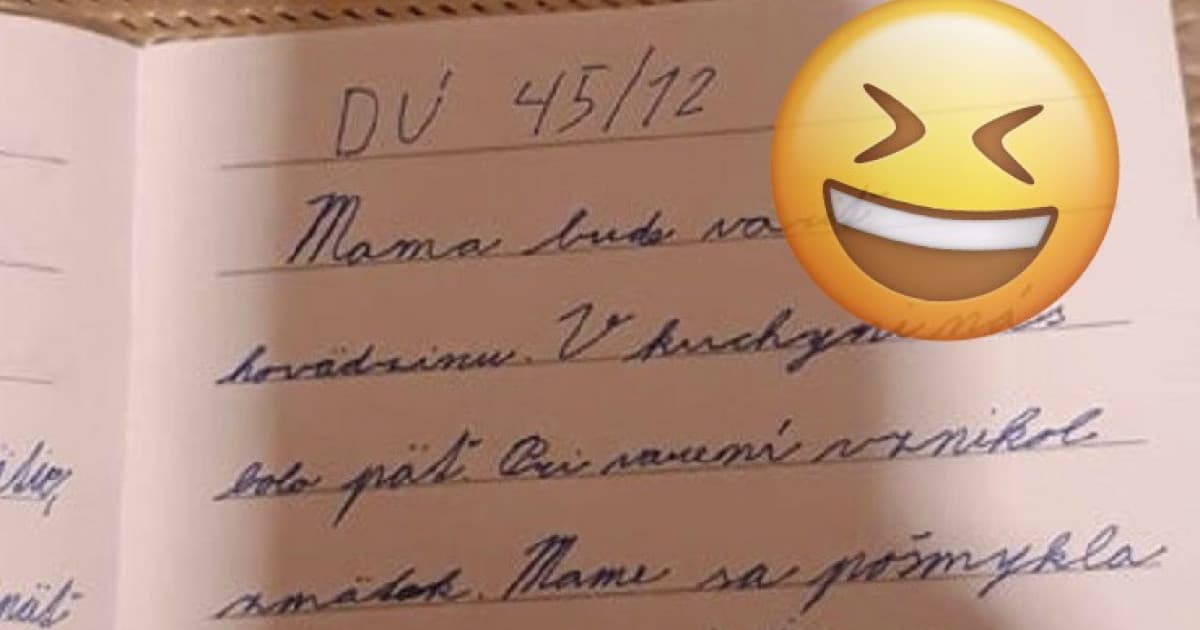 DÚ 45/12
Mama bude variť
hovädzinu. V kuchyni nás
bolo päť. Pri varení vznikol
zmätok. Mame sa pošmykla
päť